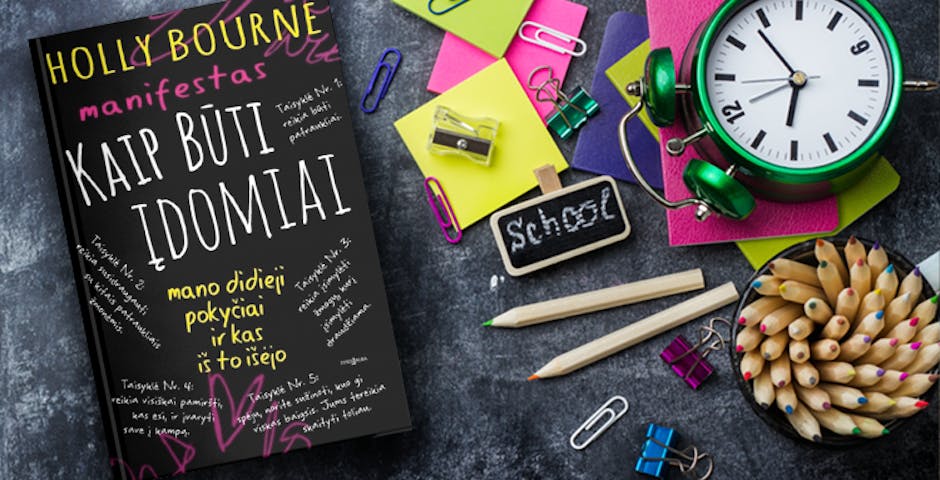 HOLLY BOURNE
manifestas
KAIP BŪTI
ĮDOMIAI
Taisyklė Nr. 1:
reikia būti
patraukliai.
Taisyklė Nr. 2:
reikia susidraugauti
su kitais patraukliais
žmonėmis.
Taisyklė Nr. 3:
reikia įsimylėti
žmogų, kurį
įsimylėti
draudžiama.
mano didieji
pokyčiai
ir kas
iš to išėjo
Taisyklė Nr. 4:
reikia visiškai pamiršti,
kas esi, ir įvaryti
save į kampą.
Taisyklė Nr. 5:
spėju, norite sužinoti, kuo gi
viskas baigsis. Jums tereikia
skaityti toliau.
School
9
12